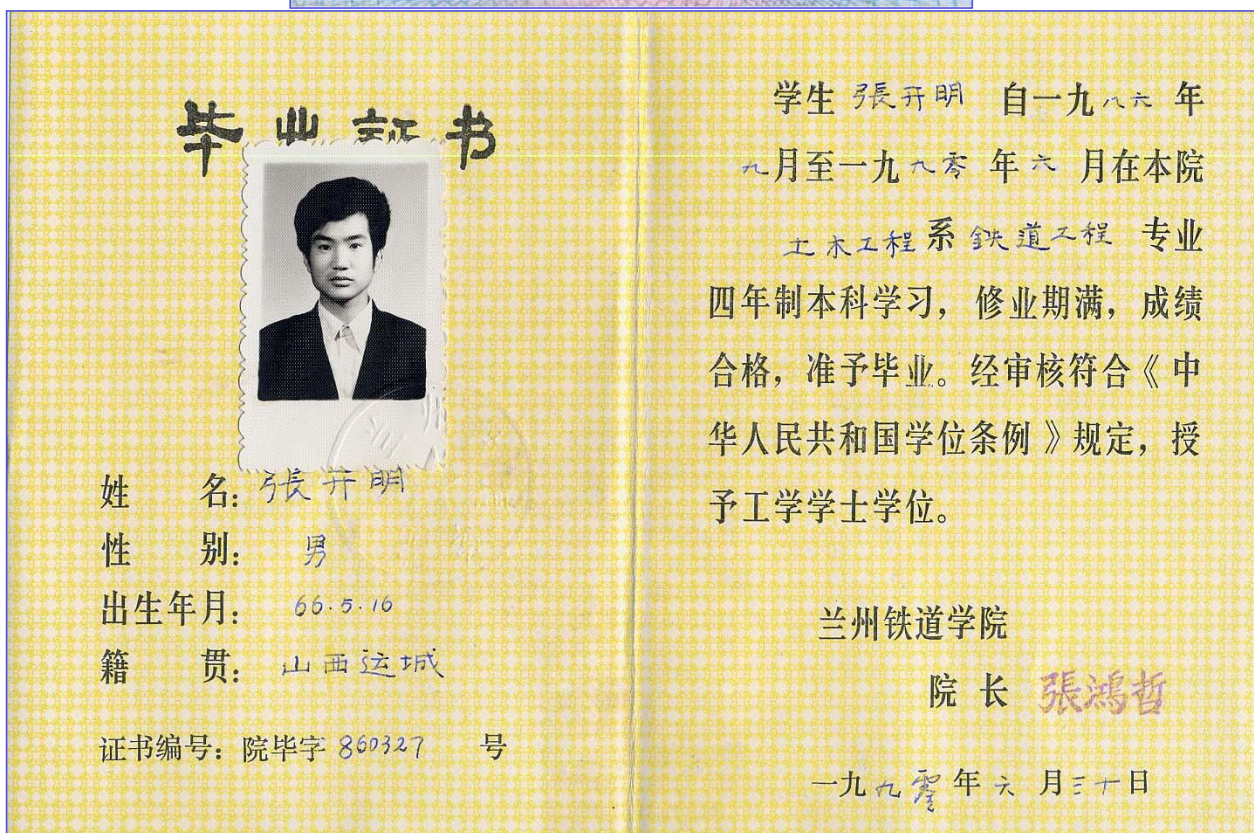 毕业证书
姓 名：張开明
性 别：男
出生年月：66.5.16
籍 贯：山西运城
证书编号：院毕字 860327 号
学生 張开明 自一九八六年
九月至一九九零年六月在本院
土木工程系 鉄道工程 专业
四年制本科学习，修业期满，成绩
合格，准予毕业。经审核符合《中
华人民共和国学位条例》规定，授
予工学学士学位。
兰州铁道学院
院长 張鴻哲
一九九零年六月三十日